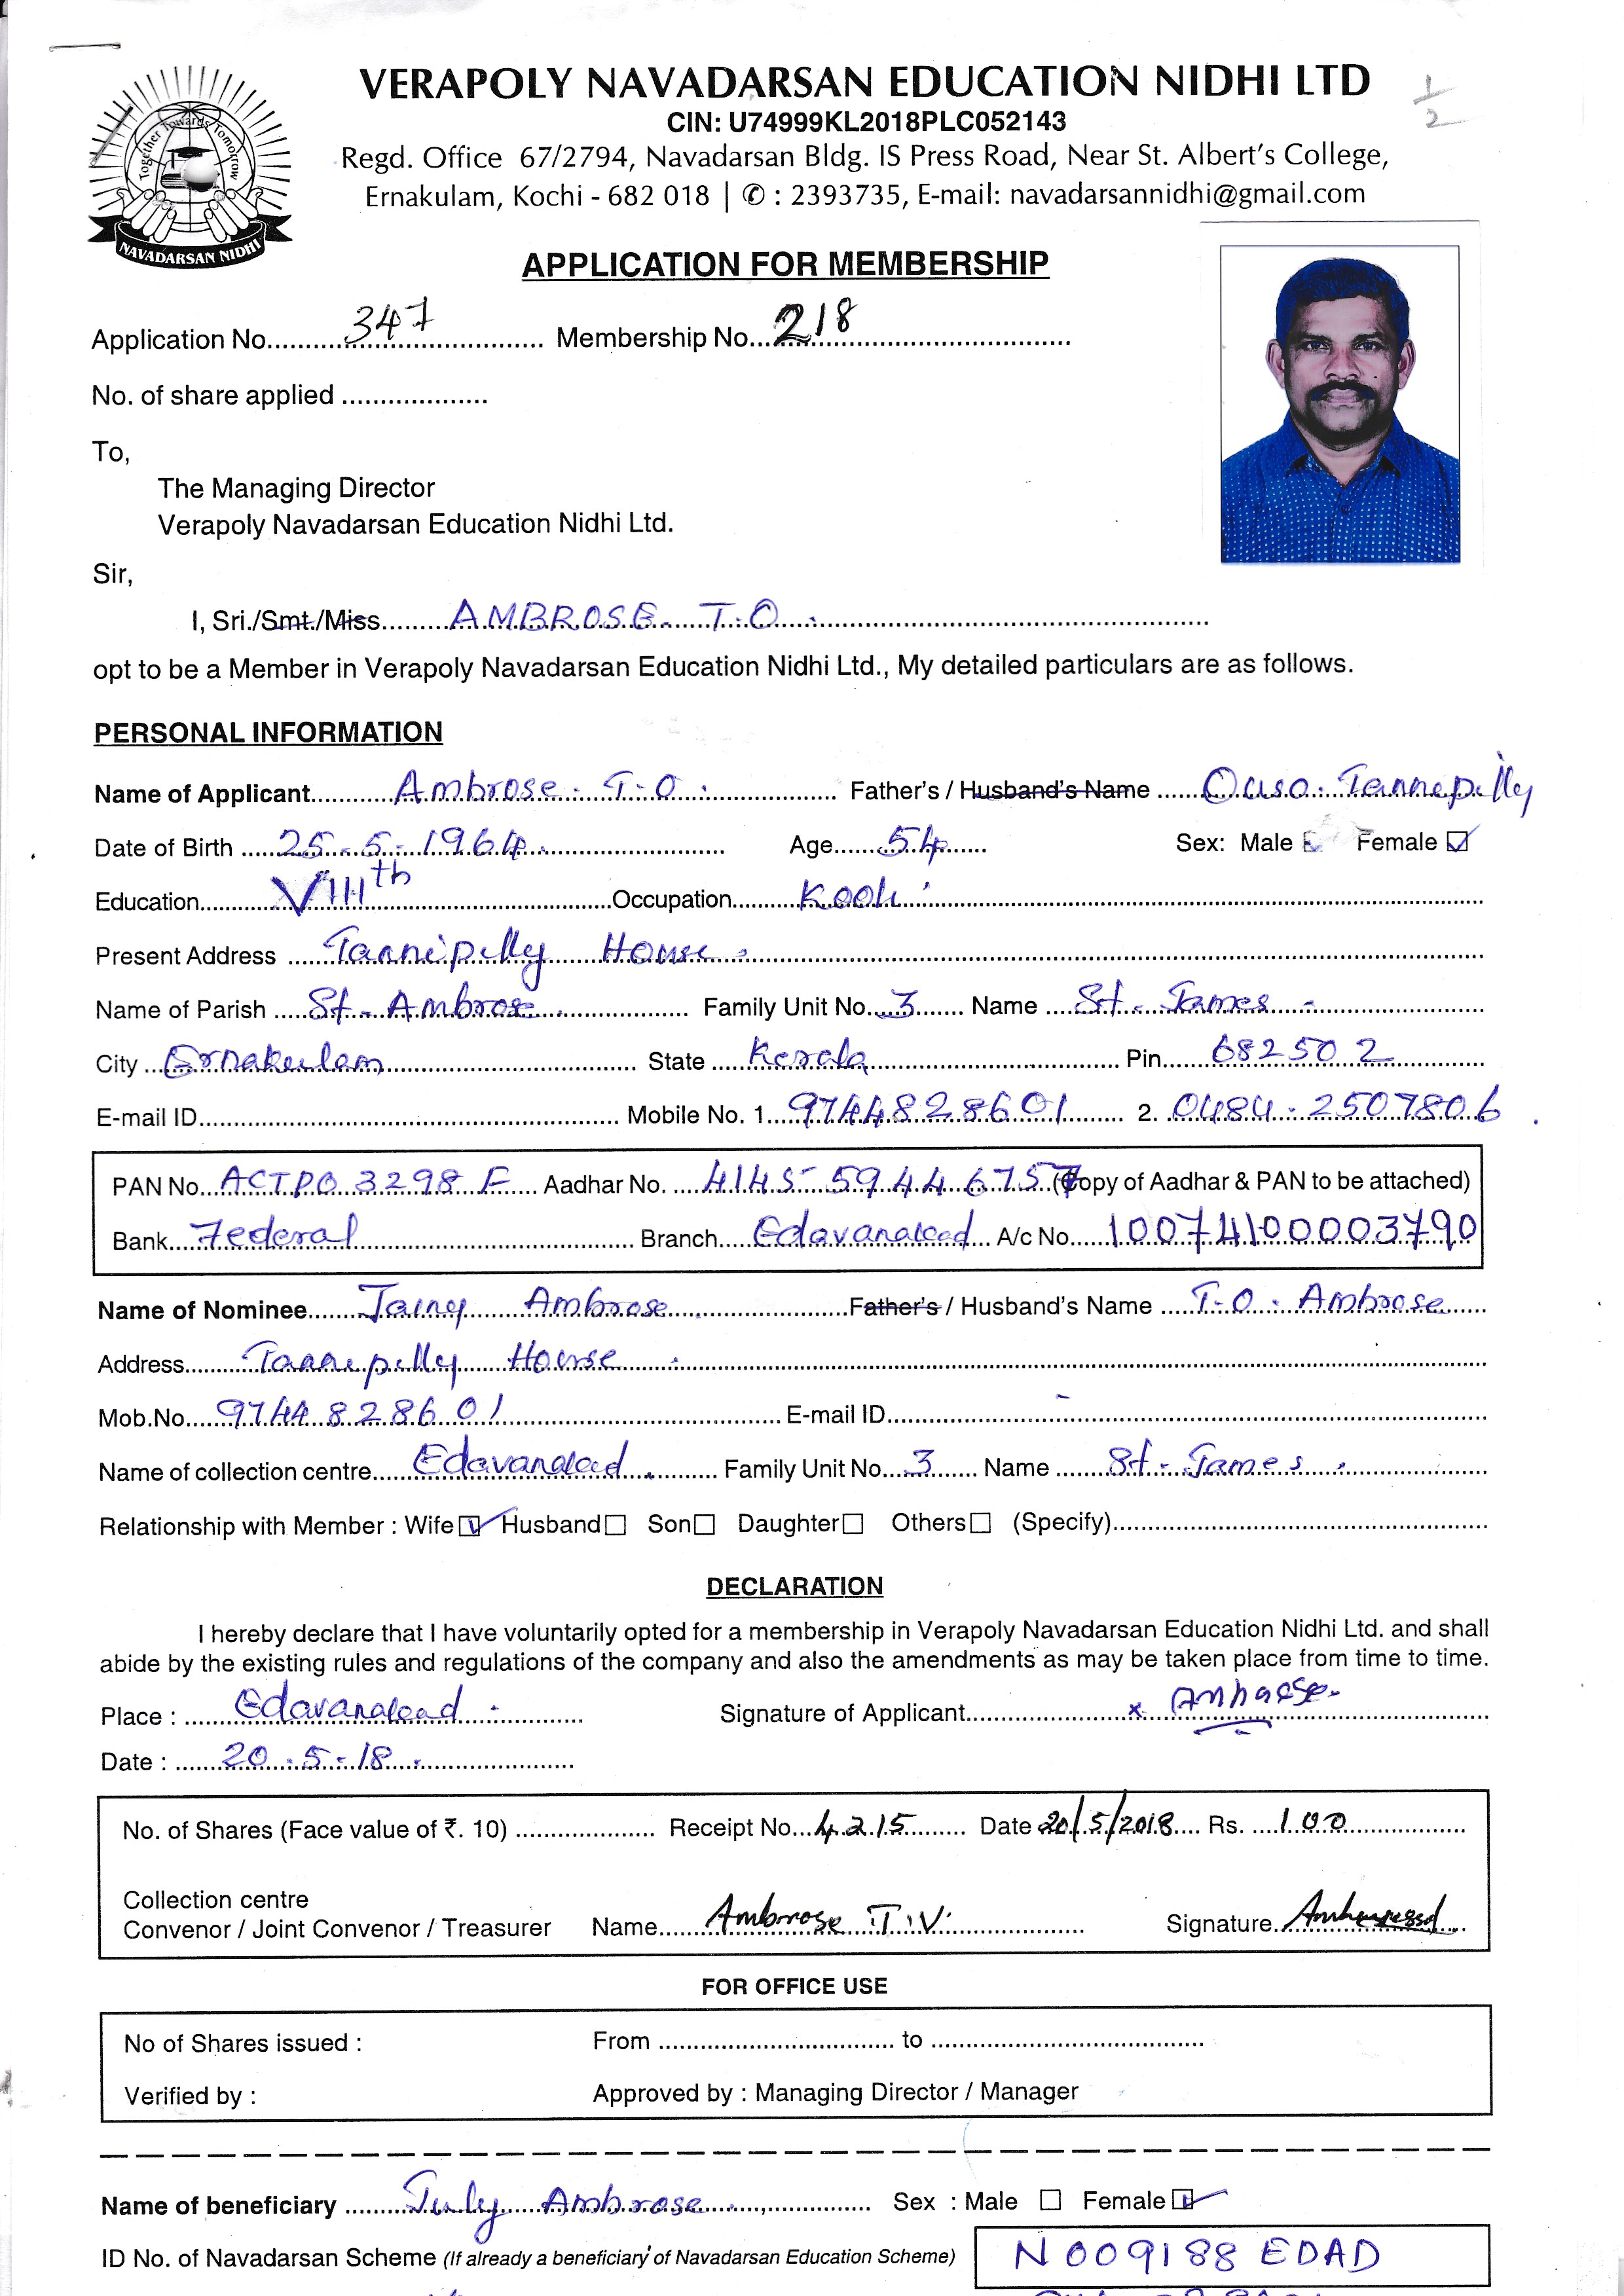 VERAPOLY NAVADARSAN EDUCATION NIDHI LTD
1/2
CIN: U74999KL2018PLC052143
Regd. Office 67/2794, Navadarsan Bldg. IS Press Road, Near St. Albert's College,
Ernakulam, Kochi - 682 018 | ✆ : 2393735, E-mail: navadarsannidhi@gmail.com
Together Towards Tomorrow
NAVADARSAN NIDHI
APPLICATION FOR MEMBERSHIP
Application No. 347 Membership No. 218
No. of share applied
To,
The Managing Director
Verapoly Navadarsan Education Nidhi Ltd.
Sir,
I, Sri./Smt./Miss AMBROSE. T.O.
opt to be a Member in Verapoly Navadarsan Education Nidhi Ltd., My detailed particulars are as follows.
PERSONAL INFORMATION
Name of Applicant Ambrose. T.O. Father's / Husband's Name Ouso. Tannepilly
Date of Birth 25-5-1964 Age 54 Sex: Male Female
Education VIIIth Occupation Kooli
Present Address Tannipilly House
Name of Parish St. Ambrose Family Unit No. 3 Name St. James
City Ernakulam State Kerala Pin 682502
E-mail ID Mobile No. 1. 9744828601 2. 0484-2507806
PAN No. ACTPO 3298 F Aadhar No. 4145 5944 6757 (Copy of Aadhar & PAN to be attached)
Bank Federal Branch Edavanakad A/c No. 10074100003790
Name of Nominee Jainy Ambrose Father's / Husband's Name T.O. Ambrose
Address Tannepilly House
Mob.No. 9744828601 E-mail ID -
Name of collection centre Edavanakad Family Unit No. 3 Name St. James
Relationship with Member : Wife Husband Son Daughter Others (Specify)
DECLARATION
I hereby declare that I have voluntarily opted for a membership in Verapoly Navadarsan Education Nidhi Ltd. and shall
abide by the existing rules and regulations of the company and also the amendments as may be taken place from time to time.
Place : Edavanakad Signature of Applicant x Ambrose
Date : 20-5-18
No. of Shares (Face value of ₹. 10) Receipt No. 4215 Date 20/5/2018 Rs. 100
Collection centre
Convenor / Joint Convenor / Treasurer Name Ambrose T.V. Signature
FOR OFFICE USE
No of Shares issued : From to
Verified by : Approved by : Managing Director / Manager
Name of beneficiary July Ambrose Sex : Male Female
ID No. of Navadarsan Scheme (If already a beneficiary of Navadarsan Education Scheme) N009188 EDAD